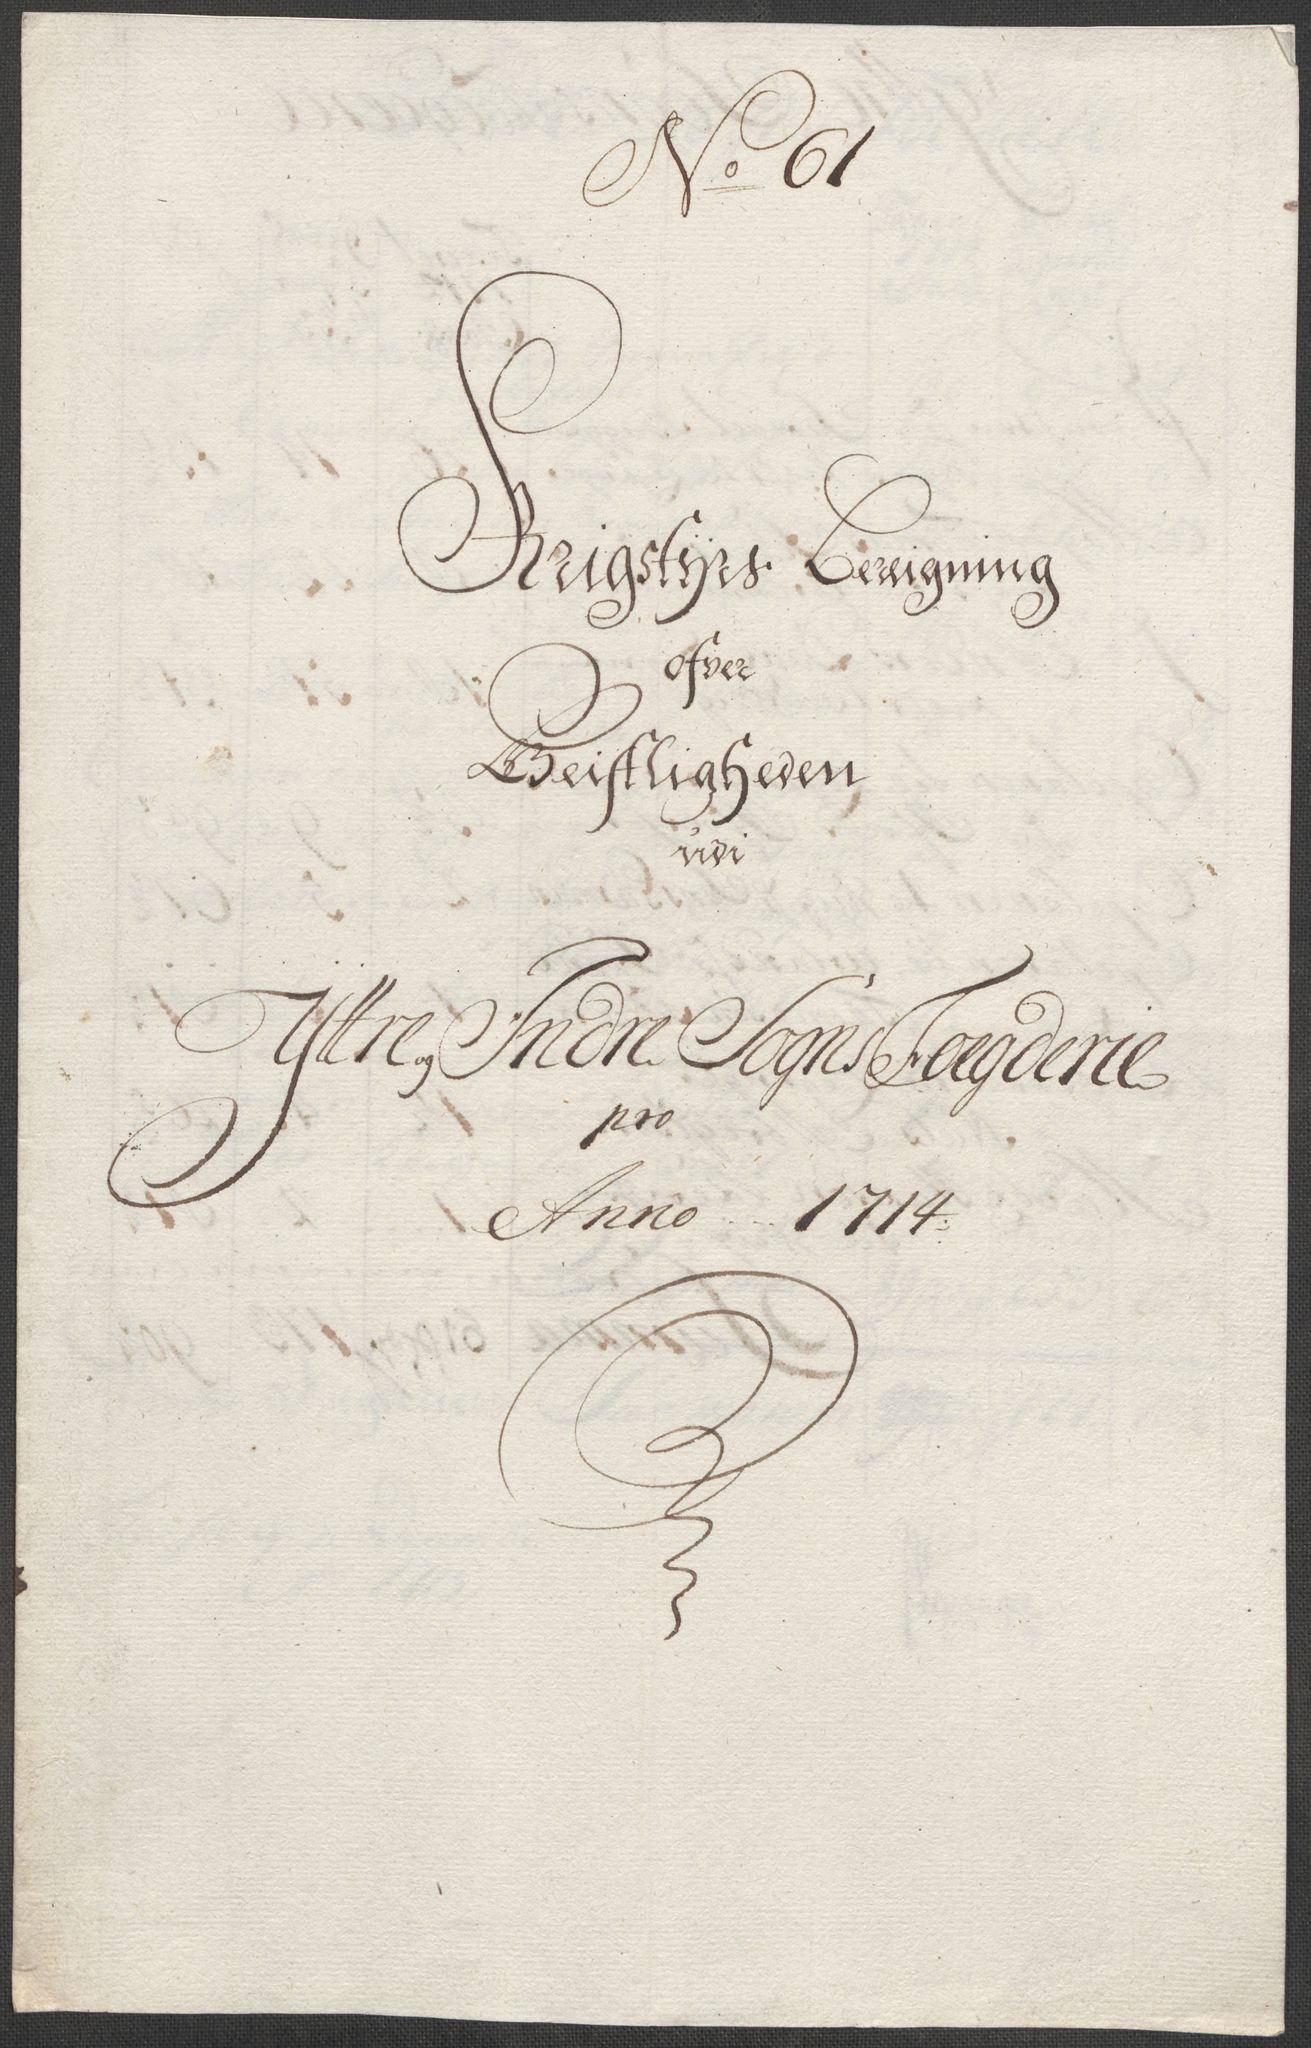 No 61
Krigstyrs Bereigning
ofver
Geistligheden
udi
Yttre og Indre Sogns Foegderie
pro
Anno 1714